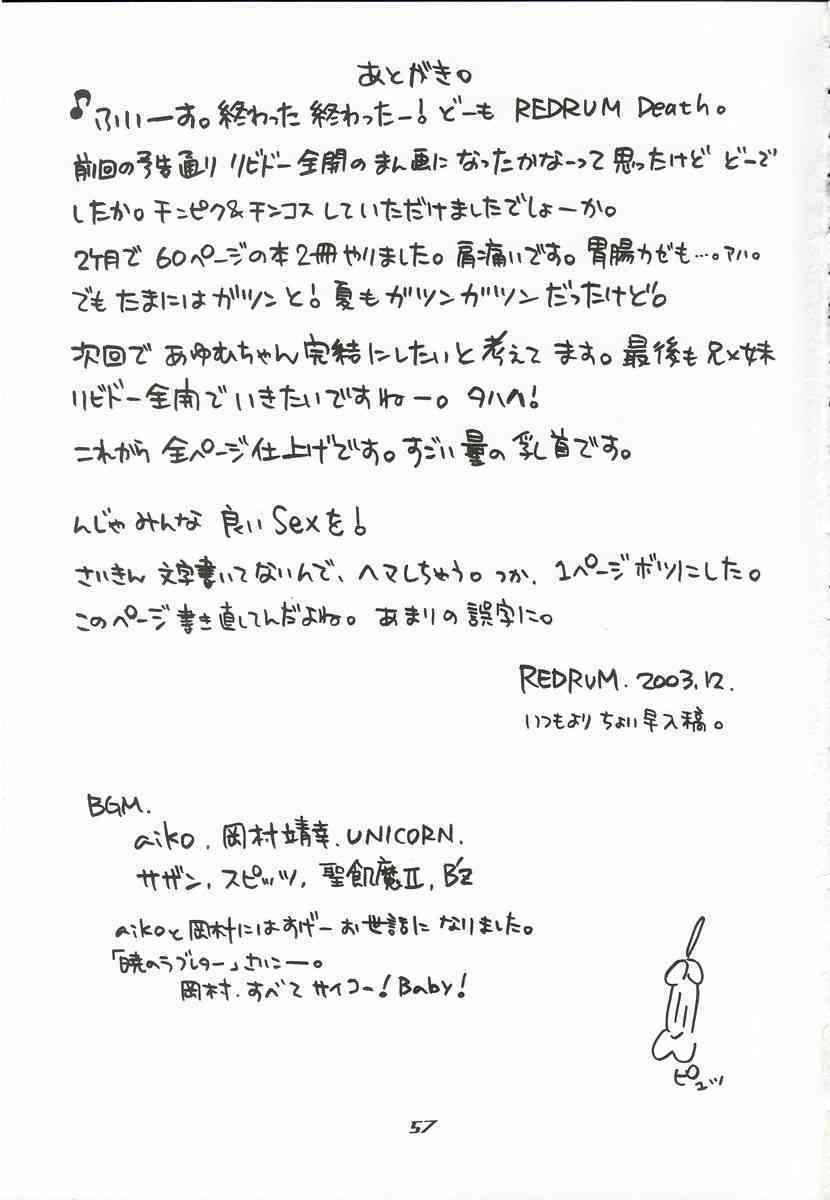 あとがき。
♪ふいーす。終わった終わったー!どーも REDRUM Death。
前回の予告通りリビドー全開のまん画になったかなーって思ったけど どーで
したか。チンピク&チンコスしていただけましたでしょーか。
2ヶ月で60ページの本2冊やりました。肩痛いです。胃腸カゼも…。アハ。
でもたまにはガツンと!夏もガツンガツンだったけど。
次回であゆむちゃん完結にしたいと考えてます。最後も兄×妹
リビドー全開でいきたいですねー。タハハ!
これから全ページ仕上げです。すごい量の乳首です。
んじゃみんな良いSexを!
さいきん文字書いてないんで、ヘマしちゃう。つか、1ページボツにした。
このページ書き直してんだよね。あまりの誤字に。
REDRUM. 2003.12.
いつもよりちょい早入稿。
BGM.
aiko, 岡村靖幸, UNICORN,
サザン, スピッツ, 聖飢魔II, B'z
aikoと岡村にはすげーお世話になりました。
「暁のラブレター」さいこー。
岡村、すべてサイコー!Baby!
ピュッ
57